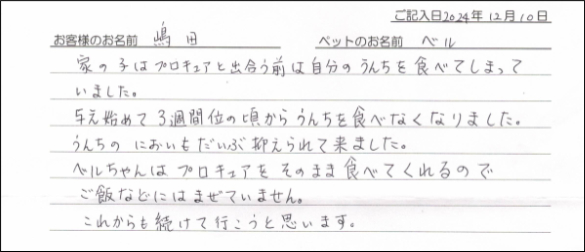 ご記入日2024年12月10日
お客様のお名前 嶋田 ペットのお名前 ベル
家の子はプロキュアと出合う前は自分のうんちを食べてしまって
いました。
与え始めて3週間位の頃からうんちを食べなくなりました。
うんちの においもだいぶ抑えられて来ました。
ベルちゃんは プロキュアを そのまま食べてくれるので
ご飯などにはまぜていません。
これからも続けて行こうと思います。